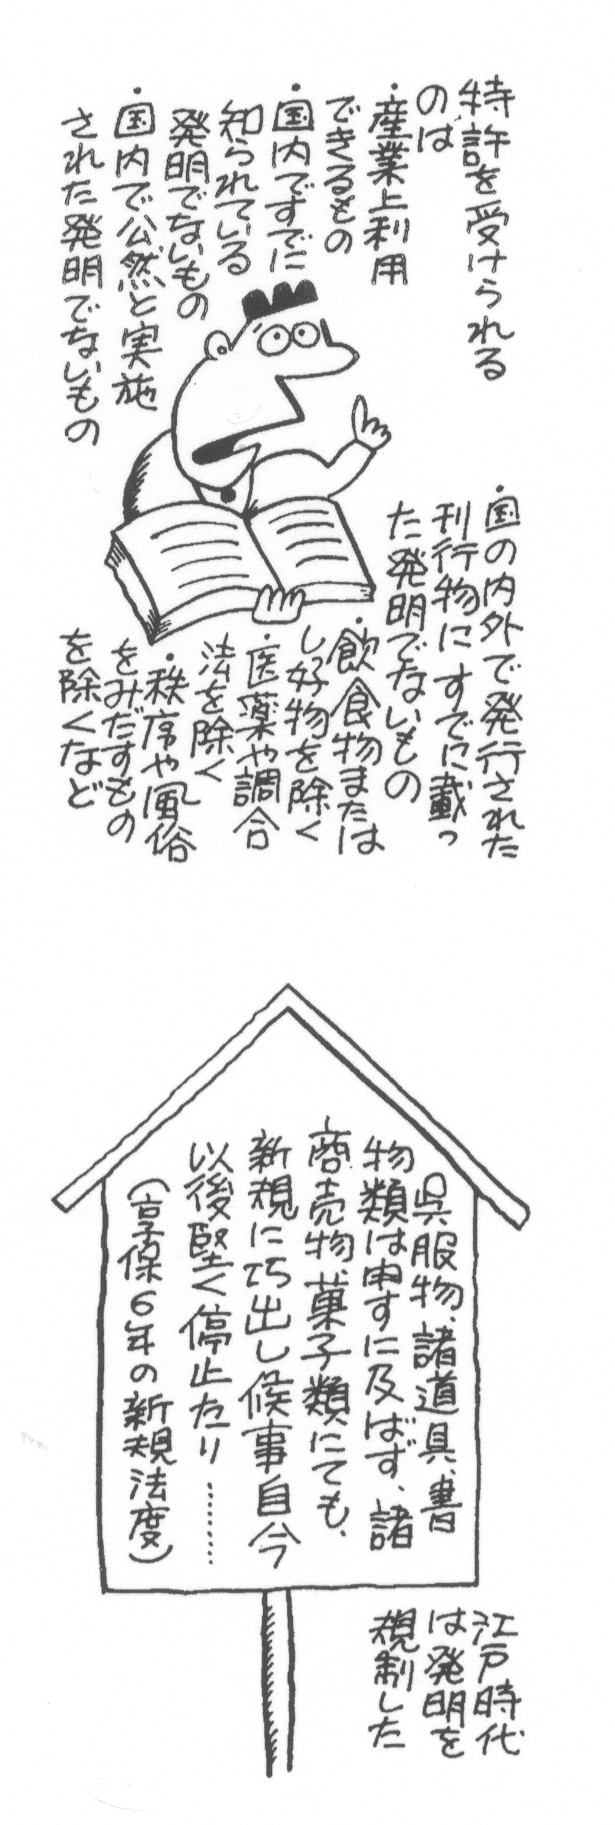 特許を受けられる
のは
・産業上利用
できるもの
・国内ですでに
知られている
発明でないもの
・国内で公然と実施
された発明でないもの
・国の内外で発行された
刊行物にすでに載っ
た発明でないもの
・飲食物または
し好物を除く
・医薬や調合
法を除く
・秩序や風俗
をみだすもの
を除くなど
呉服物、諸道具、書
物類は申すに及ばず、諸
商売物、菓子類にても、
新規に巧出し候事自今
以後堅く停止たり………
（享保6年の新規法度）
江戸時代
は発明を
規制した